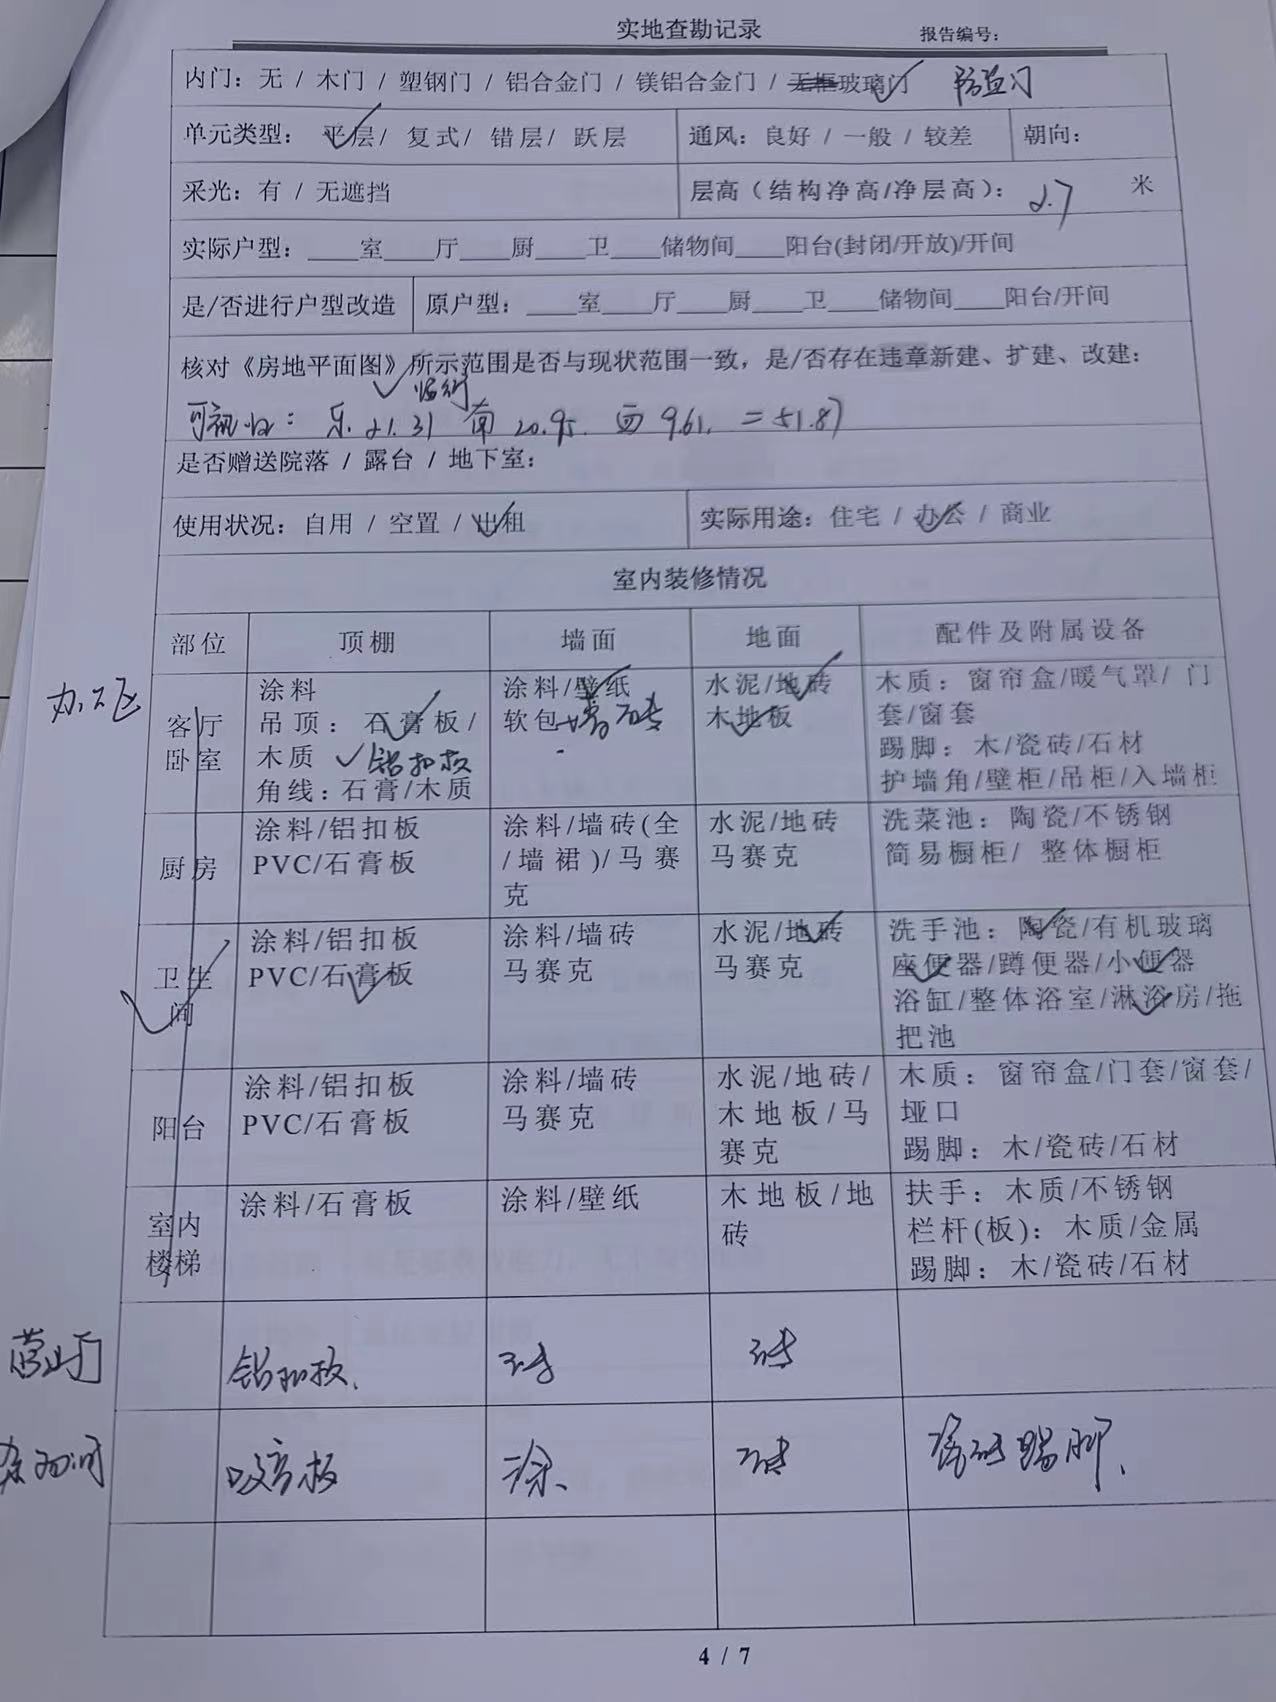 实地查勘记录
报告编号：
内门：无 / 木门 / 塑钢门 / 铝合金门 / 镁铝合金门 / 无框玻璃门 防盗门
单元类型： 平层/ 复式/ 错层/ 跃层
通风：良好 / 一般 / 较差
朝向：
采光：有 / 无遮挡
层高（结构净高/净层高）： 2.7 米
实际户型：____室____厅____厨____卫____储物间____阳台(封闭/开放)/开间
是/否进行户型改造
原户型：____室____厅____厨____卫____储物间____阳台/开间
核对《房地平面图》所示范围是否与现状范围一致，是/否存在违章新建、扩建、改建：
临街
可视: 东 21.31 南 20.95. 西 9.61. = 51.87
是否赠送院落 / 露台 / 地下室：
使用状况：自用 / 空置 / 出租
实际用途：住宅 / 办公 / 商业
室内装修情况
部位
顶棚
墙面
地面
配件及附属设备
办公区
客厅
卧室
涂料
吊顶：石膏板/
木质 铝扣板
角线：石膏/木质
涂料/壁纸
软包 墙砖
水泥/地砖
木地板
木质：窗帘盒/暖气罩/ 门
套/窗套
踢脚：木/瓷砖/石材
护墙角/壁柜/吊柜/入墙柜
厨房
涂料/铝扣板
PVC/石膏板
涂料/墙砖(全
/墙裙)/马赛
克
水泥/地砖
马赛克
洗菜池：陶瓷/不锈钢
简易橱柜/ 整体橱柜
卫生
间
涂料/铝扣板
PVC/石膏板
涂料/墙砖
马赛克
水泥/地砖
马赛克
洗手池：陶瓷/有机玻璃
座便器/蹲便器/小便器
浴缸/整体浴室/淋浴房/拖
把池
阳台
涂料/铝扣板
PVC/石膏板
涂料/墙砖
马赛克
水泥/地砖/
木地板/马
赛克
木质：窗帘盒/门套/窗套/
垭口
踢脚：木/瓷砖/石材
室内
楼梯
涂料/石膏板
涂料/壁纸
木地板/地
砖
扶手：木质/不锈钢
栏杆(板)：木质/金属
踢脚：木/瓷砖/石材
营业厅
铝扣板.
砖
砖
杂物间
吸音板
涂.
砖
瓷砖踢脚.
4 / 7